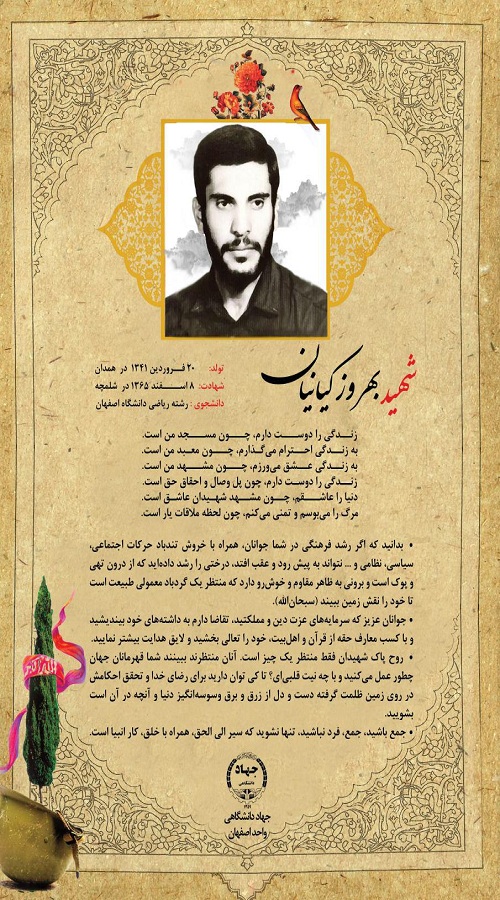 شهید بهروز کیانیان
تولد: ۲۰ فروردین ۱۳۴۱ در همدان
شهادت: ۸ اسفند ۱۳۶۵ در شلمچه
دانشجوی: رشته ریاضی دانشگاه اصفهان
زندگی را دوست دارم، چون مسجد من است.
به زندگی احترام می‌گذارم، چون معبد من است.
به زندگی عشق می‌ورزم، چون مشهد من است.
زندگی را دوست دارم، چون پل وصال و احقاق حق است.
دنیا را عاشقم، چون مشهد شهیدان عاشق است.
مرگ را می‌بوسم و تمنی می‌کنم، چون لحظه ملاقات یار است.
• بدانید که اگر رشد فرهنگی در شما جوانان، همراه با خروش تندباد حرکات اجتماعی،
سیاسی، نظامی و ... نتواند به پیش رود و عقب افتد، درختی را رشد داده‌اید که از درون تهی
و پوک است و برونی به ظاهر مقاوم و خوش‌رو دارد که منتظر یک گردباد معمولی طبیعت است
تا خود را نقش زمین ببیند (سبحان‌الله).
• جوانان عزیز که سرمایه‌های عزت دین و مملکتید، تقاضا دارم به داشته‌های خود بیندیشید
و با کسب معارف حقه از قرآن و اهل‌بیت، خود را تعالی بخشید و لایق هدایت بیشتر نمایید.
• روح پاک شهیدان فقط منتظر یک چیز است. آنان منتظرند ببینند شما قهرمانان جهان
چطور عمل می‌کنید و با چه نیت قلبی‌ای؟ تا کی توان دارید برای رضای خدا و تحقق احکامش
در روی زمین ظلمت گرفته دست و دل از زرق و برق وسوسه‌انگیز دنیا و آنچه در آن است
بشویید.
• جمع باشید، جمع، فرد نباشید، تنها نشوید که سیر الی الحق، همراه با خلق، کار انبیا است.
جهاد
دانشگاهی
جهاد دانشگاهی
واحد اصفهان